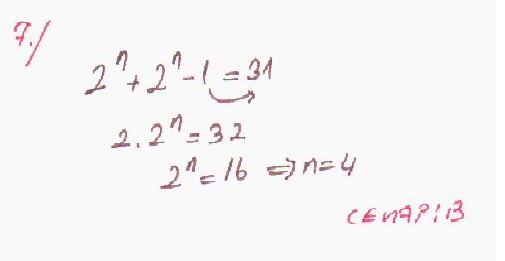 7./
2ⁿ + 2ⁿ - 1 = 31
2 . 2ⁿ = 32
2ⁿ = 16 ⇒ n = 4
CEVAP : B